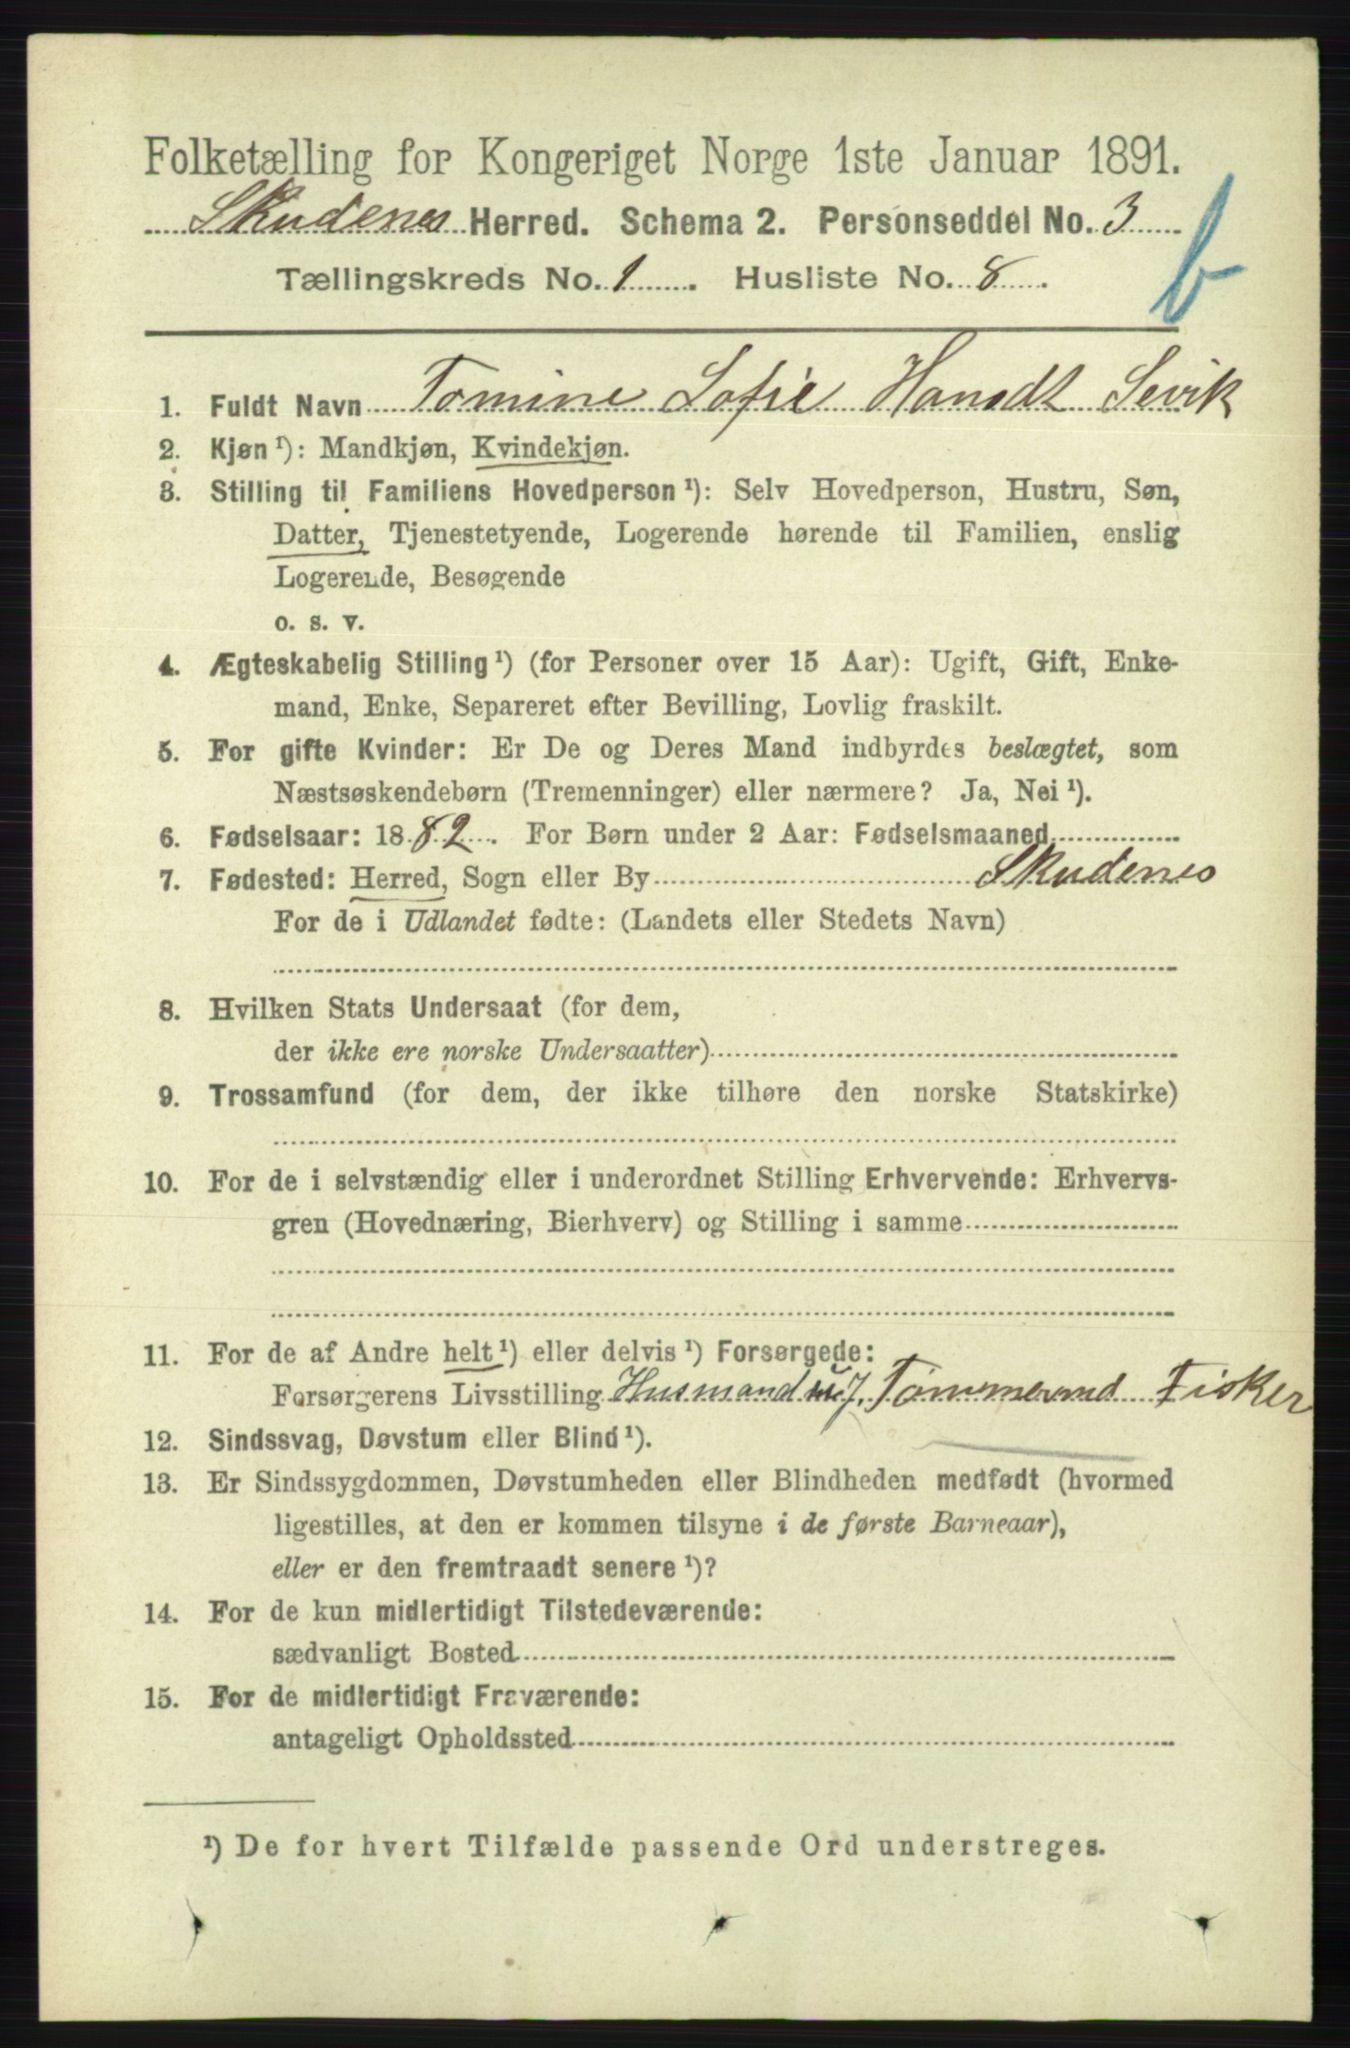 Folketælling for Kongeriget Norge 1ste Januar 1891.
Skudenes Herred. Schema 2. Personseddel No. 3
b
Tællingskreds No. 1. Husliste No. 8.
1. Fuldt Navn Tomine Sofie Hansdt Sevik
2. Kjøn ¹): Mandkjøn, Kvindekjøn.
3. Stilling til Familiens Hovedperson ¹): Selv Hovedperson, Hustru, Søn,
Datter, Tjenestetyende, Logerende hørende til Familien, enslig
Logerende, Besøgende
o. s. v.
4. Ægteskabelig Stilling ¹) (for Personer over 15 Aar): Ugift, Gift, Enke-
mand, Enke, Separeret efter Bevilling, Lovlig fraskilt.
5. For gifte Kvinder: Er De og Deres Mand indbyrdes beslægtet, som
Næstsøskendebørn (Tremenninger) eller nærmere? Ja, Nei ¹).
6. Fødselsaar: 1882. For Børn under 2 Aar: Fødselsmaaned
7. Fødested: Herred, Sogn eller By Skudenes
For de i Udlandet fødte: (Landets eller Stedets Navn)
8. Hvilken Stats Undersaat (for dem,
der ikke ere norske Undersaatter)
9. Trossamfund (for dem, der ikke tilhøre den norske Statskirke)
10. For de i selvstændig eller i underordnet Stilling Erhvervende: Erhvervs-
gren (Hovednæring, Bierhverv) og Stilling i samme
11. For de af Andre helt ¹) eller delvis ¹) Forsørgede:
Forsørgerens Livsstilling Husmand m/J. Tømmermd Fisker
12. Sindssvag, Døvstum eller Blind ¹).
13. Er Sindssygdommen, Døvstumheden eller Blindheden medfødt (hvormed
ligestilles, at den er kommen tilsyne i de første Barneaar),
eller er den fremtraadt senere ¹)?
14. For de kun midlertidigt Tilstedeværende:
sædvanligt Bosted
15. For de midlertidigt Fraværende:
antageligt Opholdssted
¹) De for hvert Tilfælde passende Ord understreges.